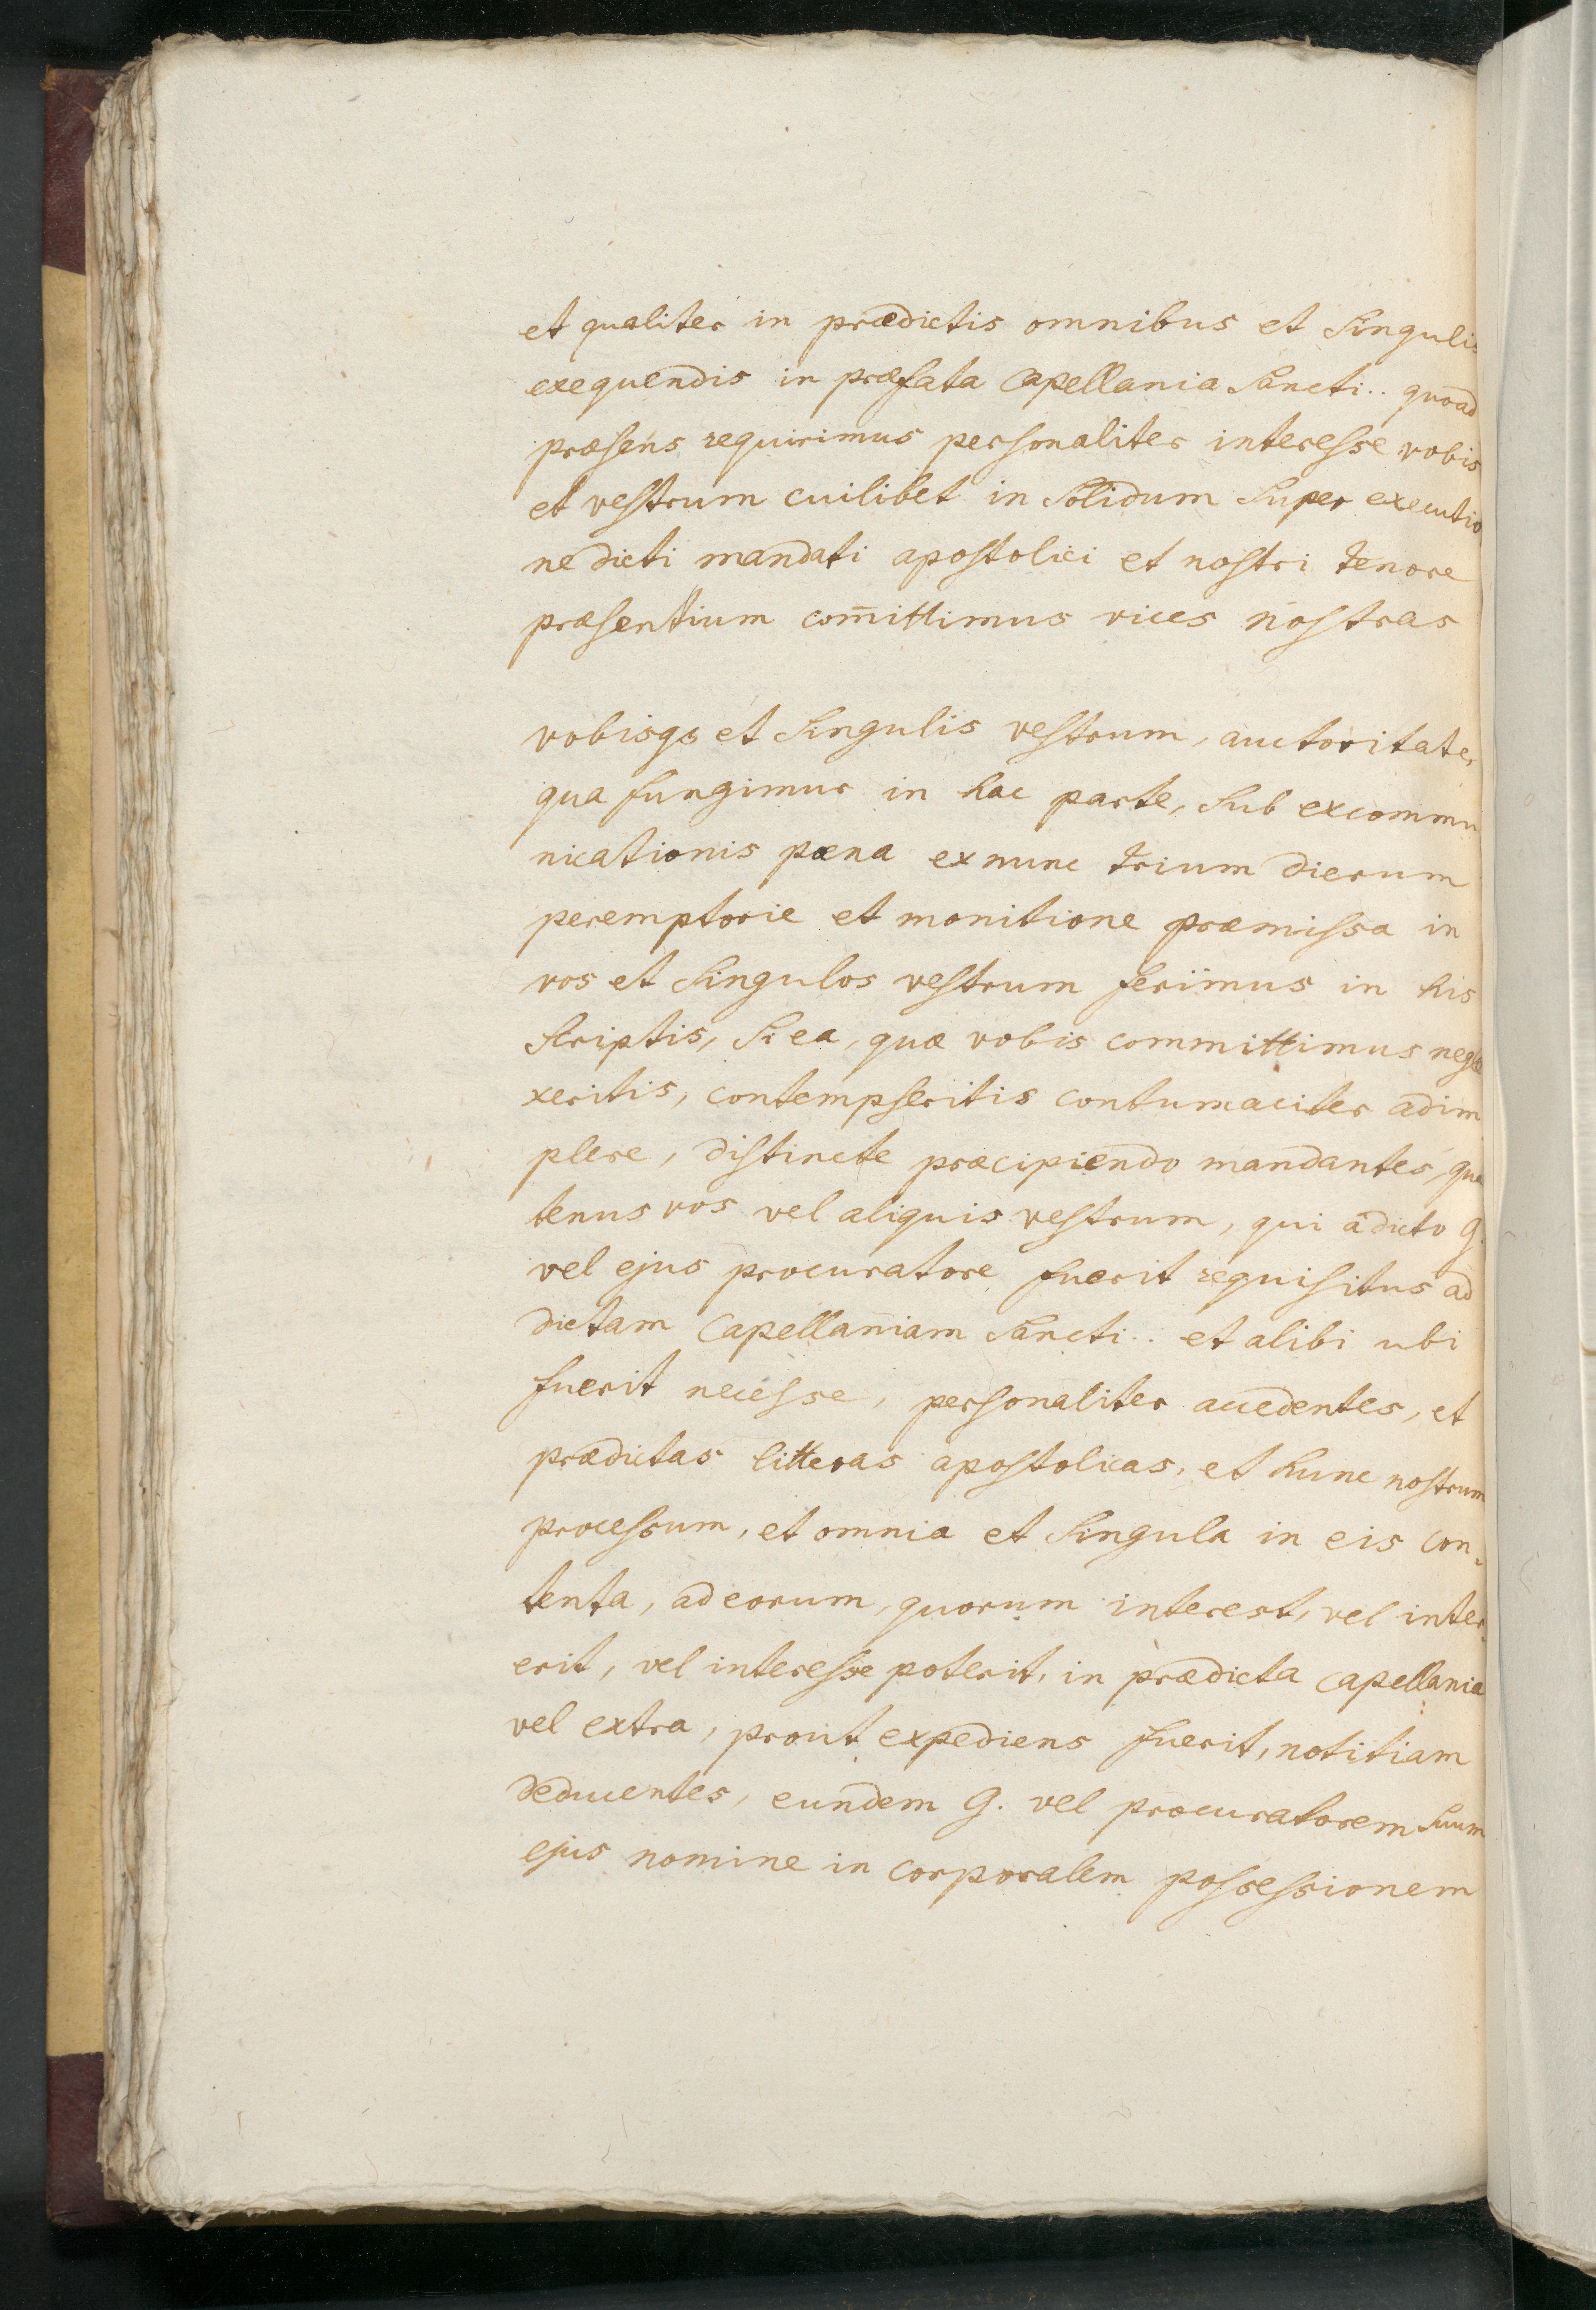 et qualiter in prædictis omnibus et Singulis
exequendis in præfata Capellania Sancti .. quoad
præsens requirimus personaliter interesse vobis
et vestrum cuilibet in Solidum Super executio
ne dicti mandati apostolici et nostri tenore
præsentium com̄ittimus vices nostras
vobisqꝫ et Singulis vestrum, auctoritate,
qua fungimur in hac parte, Sub excommu
nicationis pæna ex nunc trium dierum
peremptorie et monitione præmissa in
vos et Singulos vestrum feriimus in his
Scriptis, Si ea, quæ vobis committimus negle
xeritis, contempseritis contumaciter adim
plere, distincte præcipiendo mandantes, qua
tenus vos vel aliquis vestrum, qui a dicto G.
vel ejus procuratore fuerit requisitus ad
dictam Capellaniam Sancti .. et alibi ubi
fuerit necesse, personaliter accedentes, et
prædictas litteras apostolicas, et hunc nostrum
processum, et omnia et Singula in eis con-
tenta, ad eorum, quorum interest, vel inter-
erit, vel interesse poterit, in prædicta Capellania
vel extra, prout expediens fuerit, notitiam
deducentes, eundem G. vel procuratorem Suum
ejus nomine in corporalem possessionem